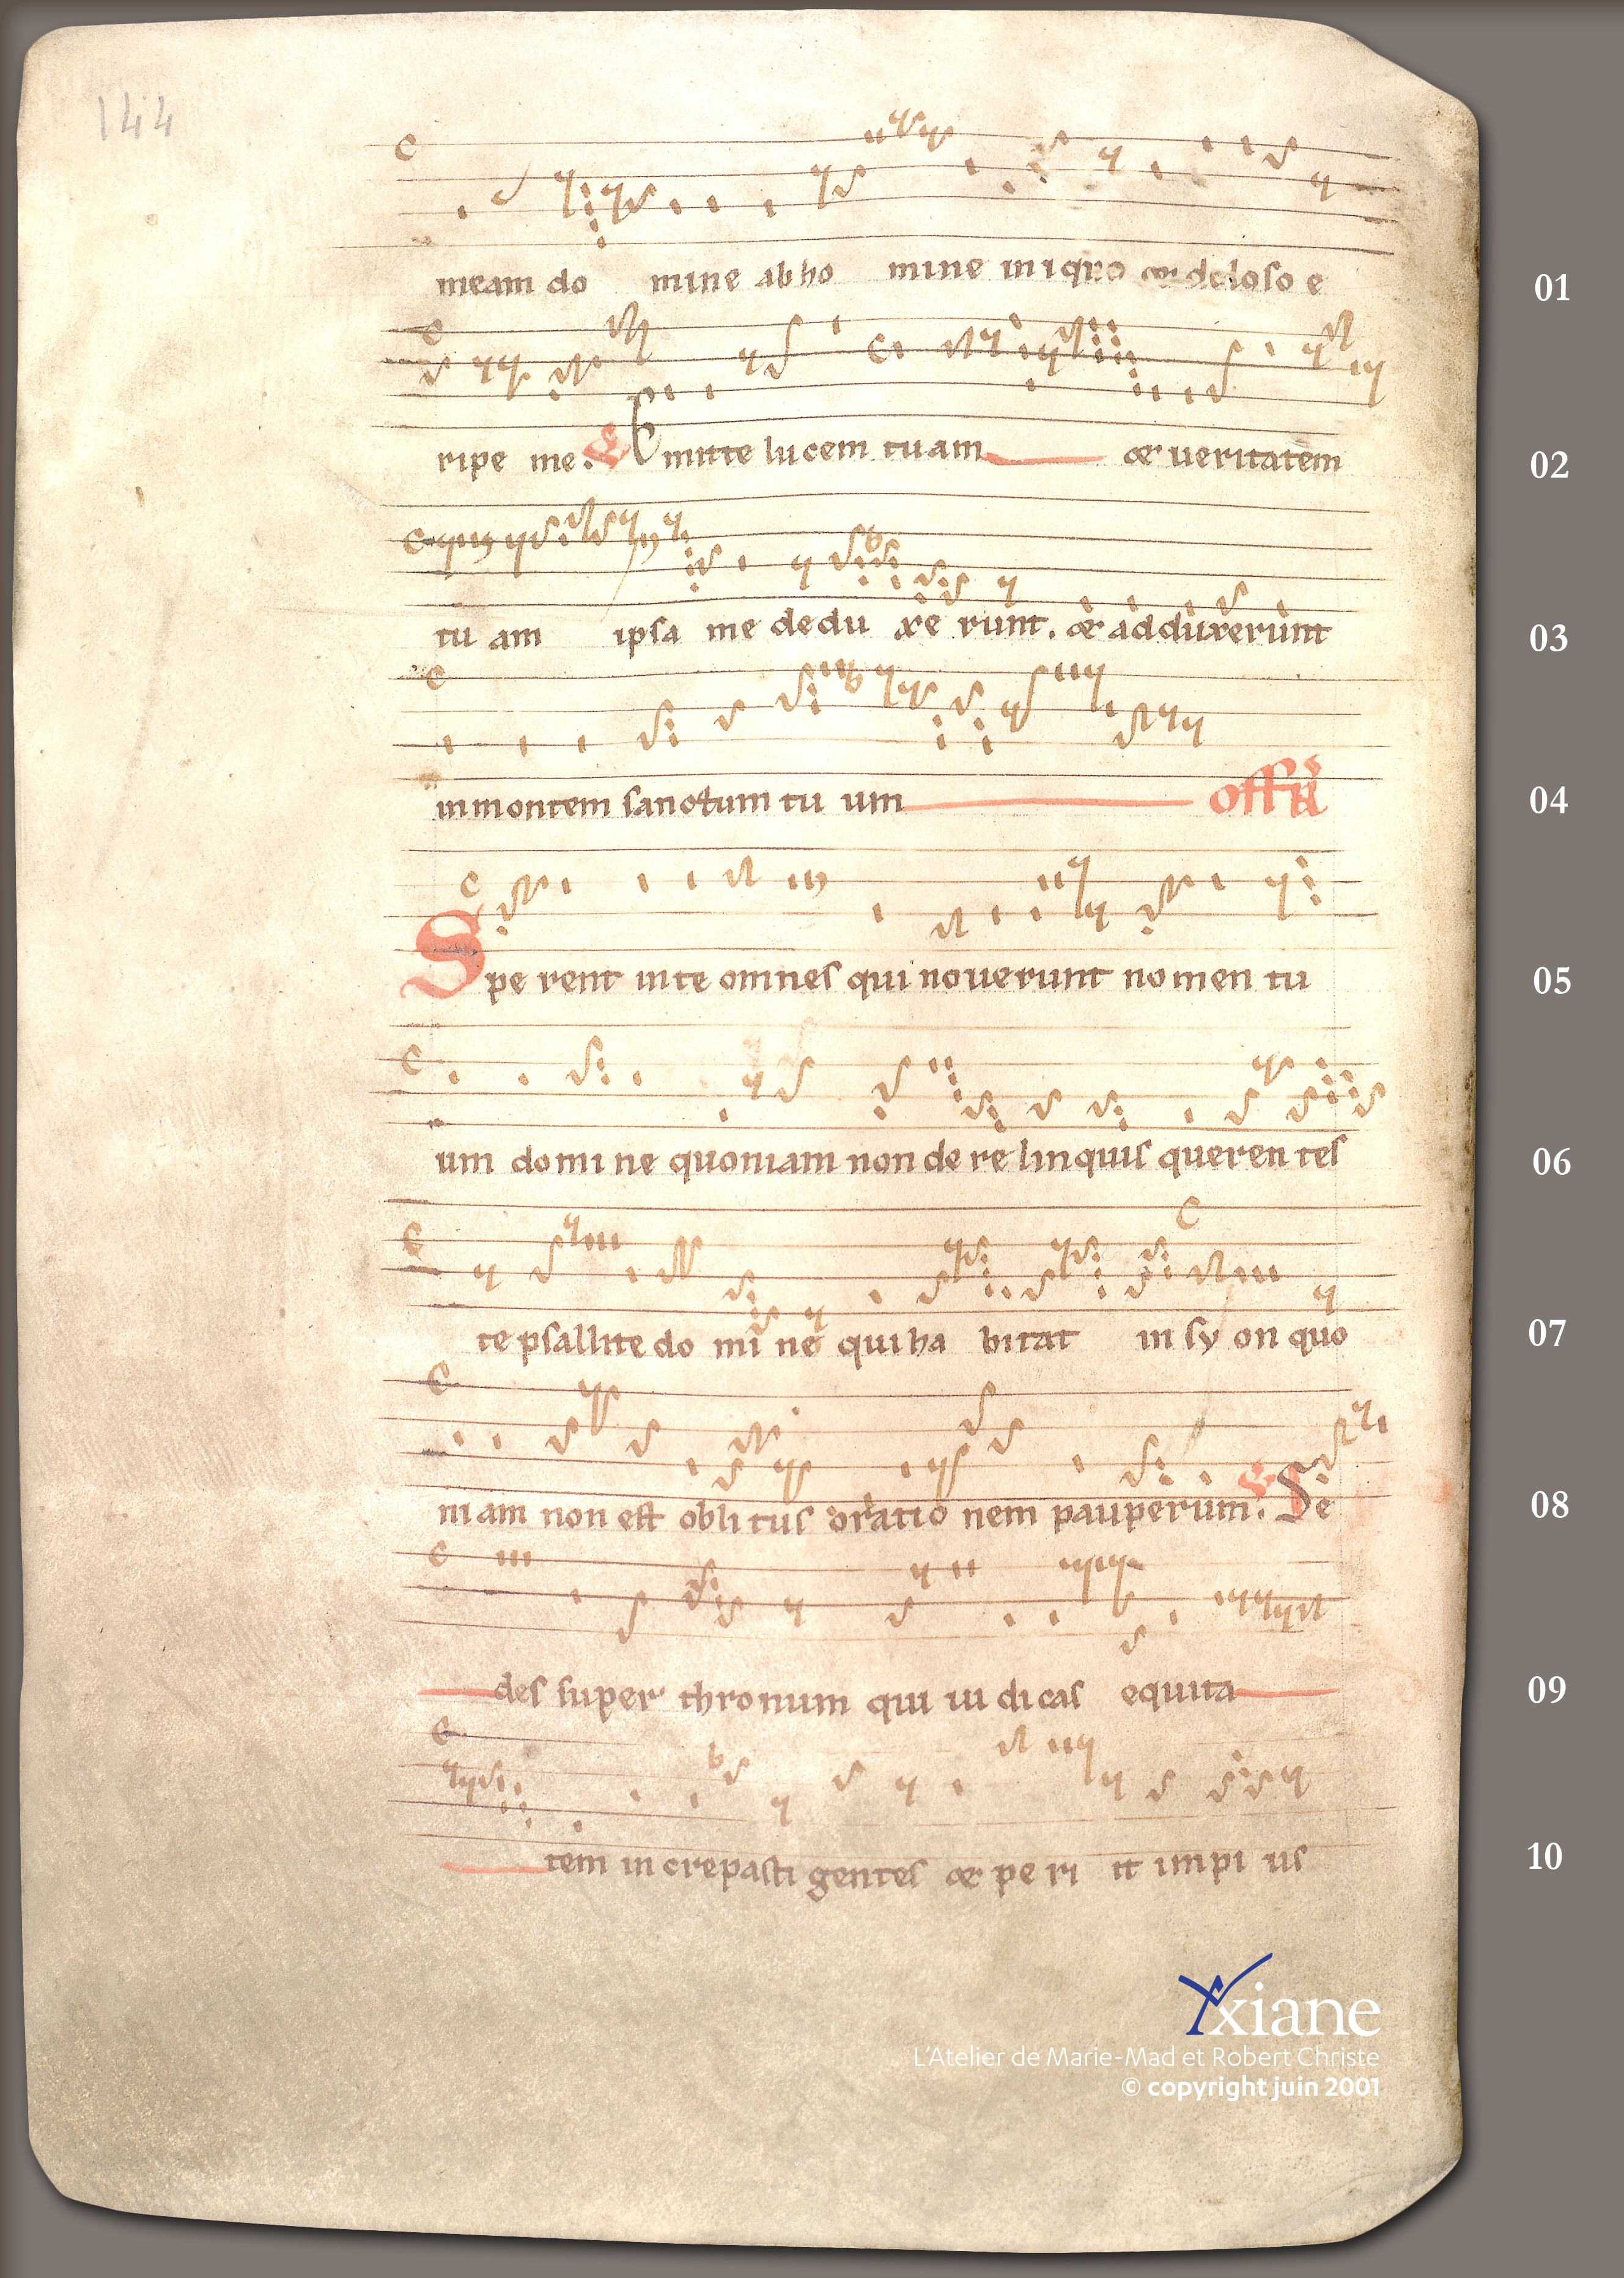 144
meam do mine ab ho mine iniquo et doloso e
01
ripe me. Emitte lucem tuam et ueritatem
02
tu am ipsa me dedu xe runt. et adduxerunt
03
in montem sanctum tu um offr
04
Spe rent in te omnes qui nouerunt nomen tu
05
um domi ne quoniam non de re linquis queren tes
06
te psallite do mi no qui ha bitat in sy on quo
07
niam non est obli tus oratio nem pauperum. Se
08
des super thronum qui iu di cas equita
09
tem increpasti gentes et pe ri it impi us
10
Yxiane
L'Atelier de Marie-Mad et Robert Christe
© copyright juin 2001